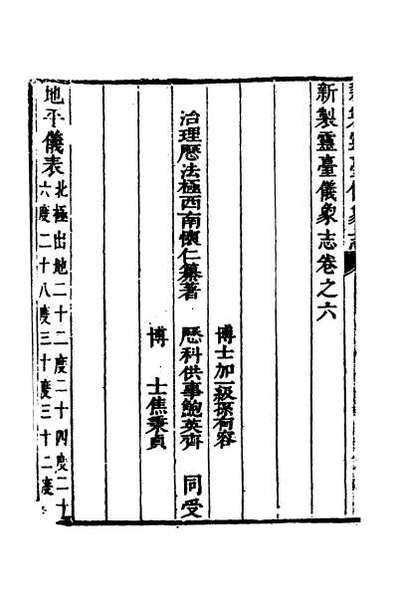 新製靈臺儀象志卷之六
治理曆法極西南懷仁纂著
博士加一級孫有容
曆科供事鮑英齊
博士焦秉貞
同受
地平儀表
北極出地二十二度二十四度二十
六度二十八度三十度三十二度